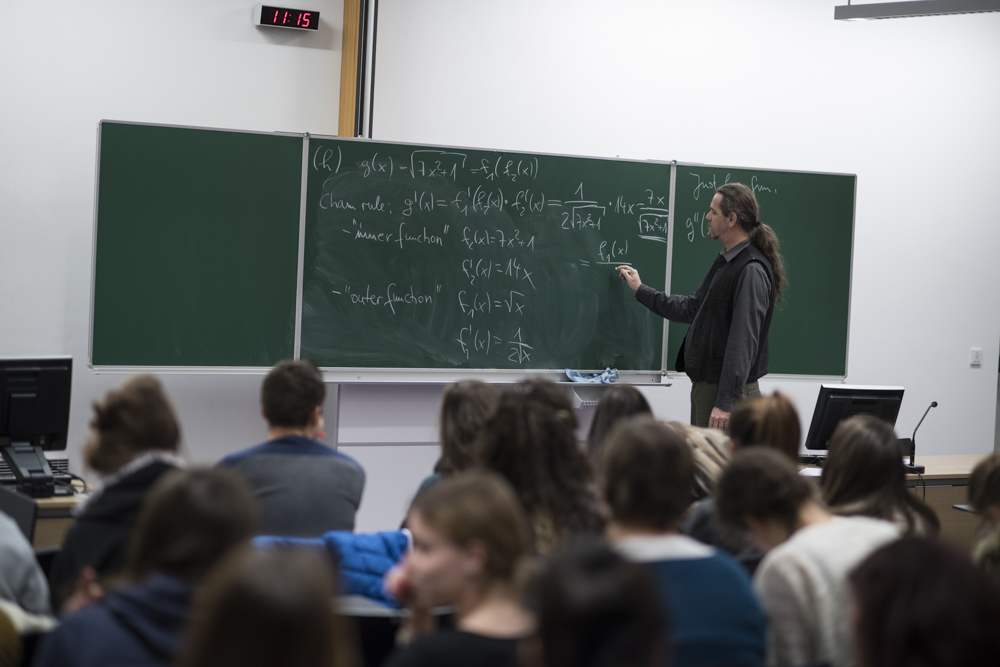 11:15
(h) g(x) = √(7x²+1) = f₁(f₂(x))
Chain rule: g'(x) = f₁'(f₂(x)) · f₂'(x) = 1/(2√(7x²+1)) · 14x = 7x/√(7x²+1)
- "inner function" f₂(x) = 7x²+1
= f₁(x)/
f₂'(x) = 14x
- "outer function" f₁(x) = √x
f₁'(x) = 1/(2√x)
g"(